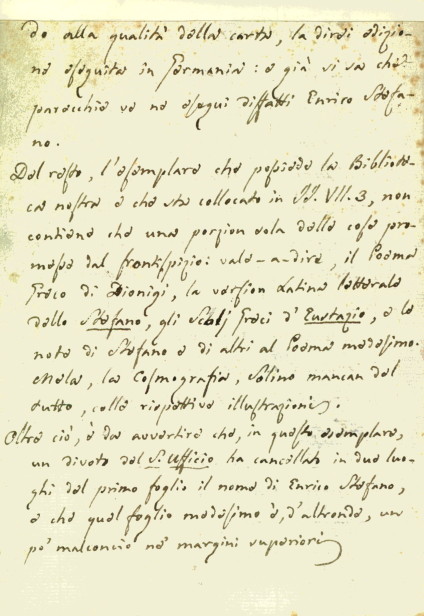 do alla qualità della carta, la direi edizio-
ne eseguita in Germania: e già si sa che
parecchie ve ne eseguì diffatti Enrico Stefa-
no.
Del resto, l'esemplare che possiede la Bibliote-
ca nostra e che sta collocato in JJ. VII. 3, non
contiene che una porzion sola delle cose pro-
messe dal frontispizio: vale-a-dire, il Poema
Greco di Dionigi, la version Latina letterale
dello Stefano, gli Scolj Greci d'Eustazio, e le
note di Stefano e di altri al Poema medesimo.
Mela, la Cosmografia, Solino mancan del
tutto, colle rispettive illustrazioni.
Oltre ciò, è da avvertire che, in questo esemplare,
un divoto del S. Ufficio ha cancellato in due luo-
ghi del primo foglio il nome di Enrico Stefano,
e che quel foglio medesimo è, d'altronde, un
po' malconcio ne' margini superiori